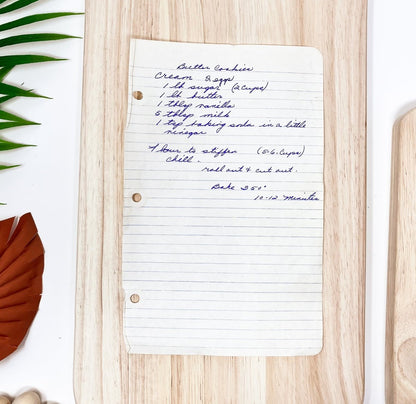 Butter Cookies
Cream 2 eggs
1 lb sugar (2 cups)
1 lb butter
1 tblsp vanilla
5 tblsp milk
1 tsp baking soda in a little
vinegar
Flour to stiffen (5-6 Cups)
Chill.
roll out & cut out.
Bake 350°
10-12 Minutes